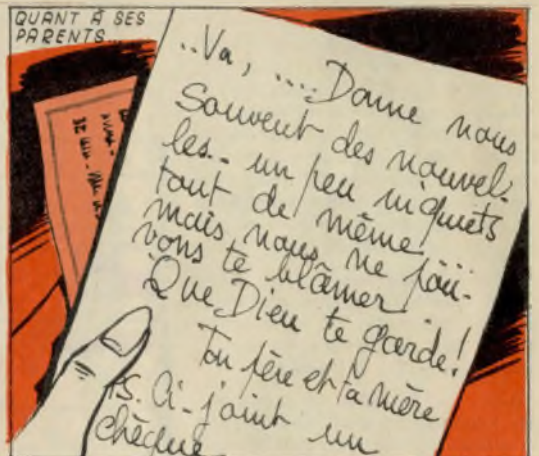 QUANT À SES
PARENTS...
..Va, .... Donne nous
souvent des nouvel-
les.. un peu inquiets
tout de même
mais nous ne pou-
vons te blâmer.
Que Dieu te garde!
Ton père et ta mère
P.S. Ci-joint un
chèque